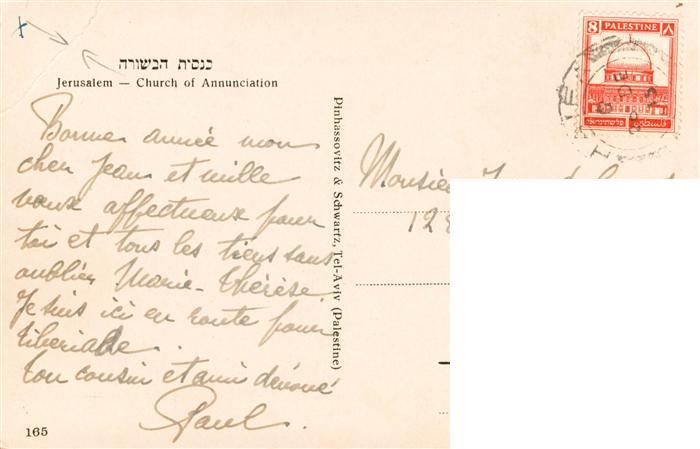 כנסית הבשורה
Jerusalem — Church of Annunciation
Bonne année mon
cher Jean et mille
vœux affectueux pour
toi et tous les tiens sans
oublier Marie-Thérèse.
Je suis ici en route pour
Tibériade.
Ton cousin et ami dévoué
Paul.
165
Pinhassovitz & Schwartz, Tel-Aviv (Palestine)
8 PALESTINE ٨
פלשתינה א״י فلسطين
Monsieur
128